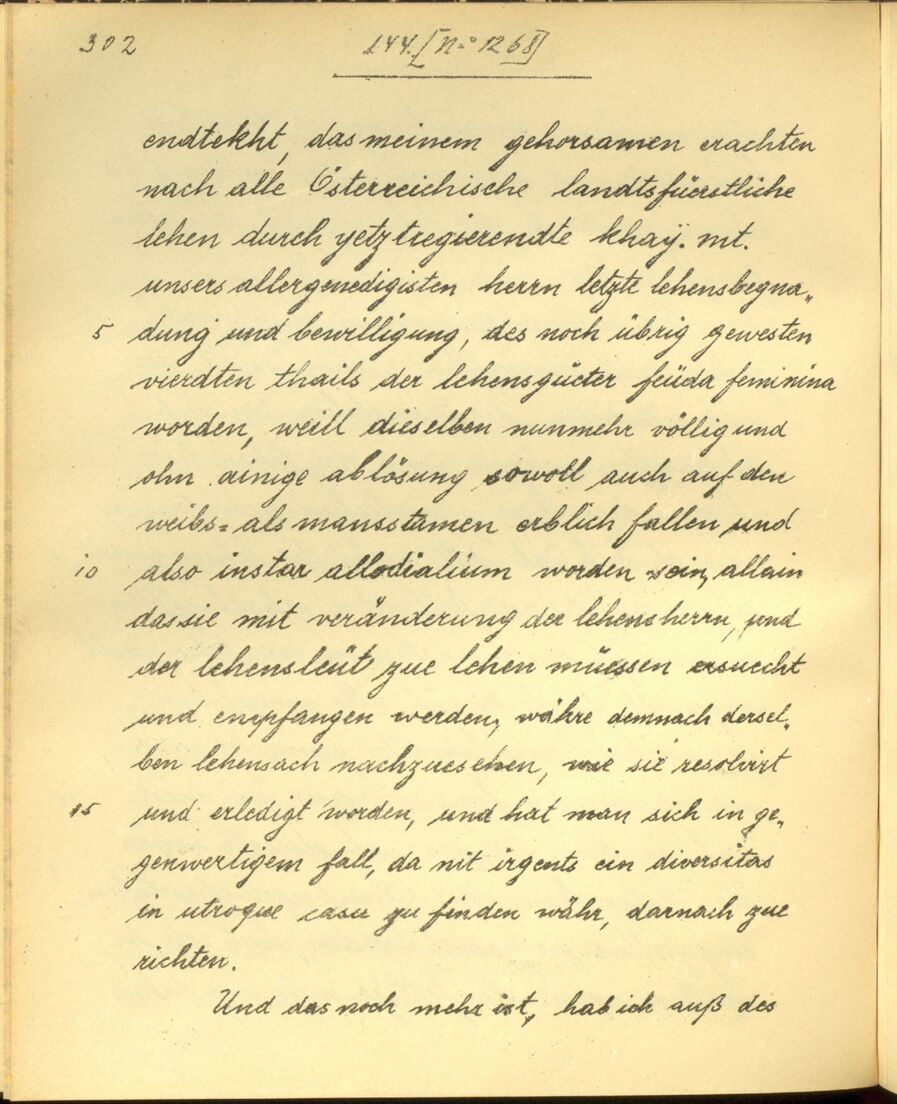 302 144. [N=o 1268]
endtekht, das meinem gehorsamen erachten
nach alle Österreichische landtsfüerstliche
lehen durch yetztregierendte khaÿ. mt.
unsers allergenedigisten herrn letzte lehensbegna„
5 dung und bewilligung, des noch übrig gewesten
vierdten thails der lehensgüeter feüda feminina
worden, weill dieselben nunmehr völlig und
ohn ainige ablösung sowoll auch auf den
weibs= als mansstamen erblich fallen und
10 also instar allodialium worden sein, allain
das sie mit veränderung der lehensherrn, und
der lehensleüt zue lehen müessen ersuecht
und empfangen werden, währe demnach dersel„
ben lehensach nachzuesehen, wie sie resolvirt
15 und erledigt worden, und hat man sich in ge„
genwertigem fall, da nit irgents ein diversitas
in utroque casu zu finden währ, darnach zue
richten.
Und das noch mehr ist, hab ich auß des